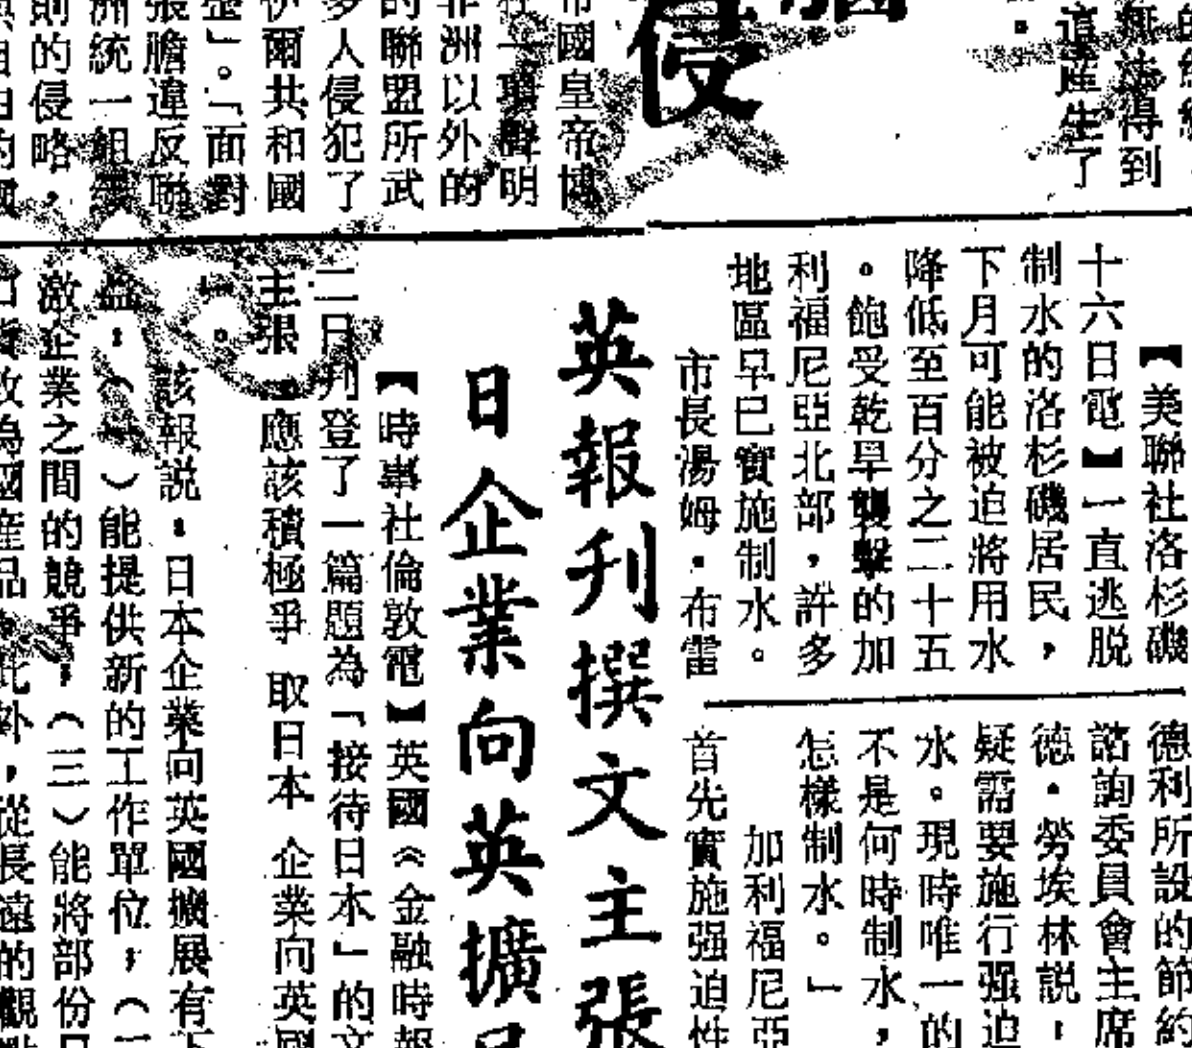 的
無法得到
這產生了
。
侵
帝國皇帝博
一項聲明
非洲以外的
的聯盟所武
多人侵犯了
伊爾共和國
整」。「面對
張膽違反聯
洲統一組織
則的侵略，
【美聯社洛杉磯
十六日電】一直逃脱
制水的洛杉磯居民，
下月可能被迫將用水
降低至百分之二十五
。飽受乾旱襲擊的加
利福尼亞北部，許多
地區早已實施制水。
市長湯姆·布雷
德利所設的節約
諮詢委員會主席
德·勞埃林説：
疑需要施行强迫
水。現時唯一的
不是何時制水，
怎樣制水。」
加利福尼亞
首先實施强迫性
英報刋撰文主張
日企業向英擴
【時事社倫敦電】英國《金融時報
二日刋登了一篇題為「接待日本」的文
主張，應該積極爭取日本企業向英國
。
該報説：日本企業向英國擴展有下
益：（一）能提供新的工作單位；（二
激企業之間的競爭；（三）能將部份日
口貨改為國産品。此外，從長遠的觀點